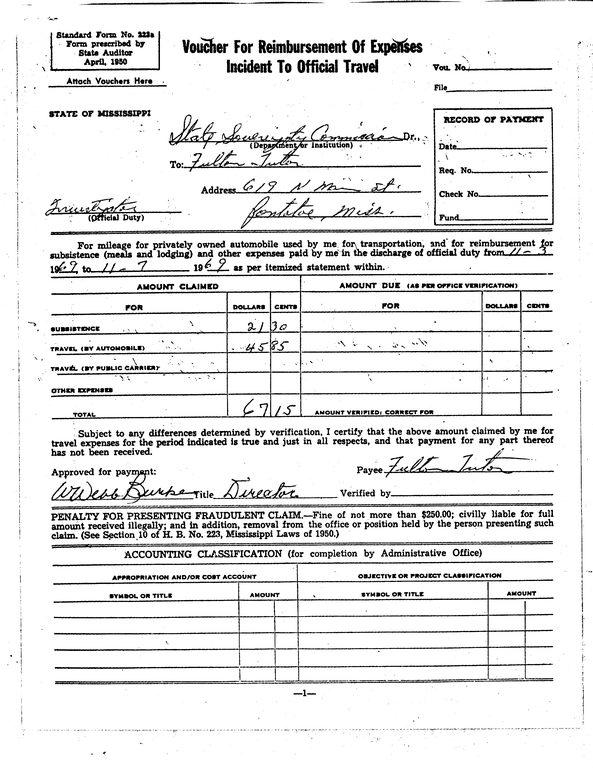 Standard Form No. 223a
Form prescribed by
State Auditor
April, 1950
Attach Vouchers Here
Voucher For Reimbursement Of Expenses
Incident To Official Travel
Vou. No.
File
STATE OF MISSISSIPPI
State Sovereignty Commission Dr.,
(Department or Institution)
To: Fulton Tutor
Address 619 N Main St.
Pontotoc, Miss.
Investigator
(Official Duty)
RECORD OF PAYMENT
Date
Req. No.
Check No.
Fund
For mileage for privately owned automobile used by me for transportation, and for reimbursement for
subsistence (meals and lodging) and other expenses paid by me in the discharge of official duty from 11-3
1969, to 11-7 1969 as per itemized statement within.
AMOUNT CLAIMED AMOUNT DUE (AS PER OFFICE VERIFICATION)
FOR DOLLARS CENTS FOR DOLLARS CENTS
SUBSISTENCE 21 30
TRAVEL (BY AUTOMOBILE) 45 85
TRAVEL (BY PUBLIC CARRIER)
OTHER EXPENSES
TOTAL 67 15 AMOUNT VERIFIED; CORRECT FOR
Subject to any differences determined by verification, I certify that the above amount claimed by me for
travel expenses for the period indicated is true and just in all respects, and that payment for any part thereof
has not been received.
Payee Fulton Tutor
Approved for payment:
W Webb Burke Title Director Verified by
PENALTY FOR PRESENTING FRAUDULENT CLAIM.—Fine of not more than $250.00; civilly liable for full
amount received illegally; and in addition, removal from the office or position held by the person presenting such
claim. (See Section 10 of H. B. No. 223, Mississippi Laws of 1950.)
ACCOUNTING CLASSIFICATION (for completion by Administrative Office)
APPROPRIATION AND/OR COST ACCOUNT OBJECTIVE OR PROJECT CLASSIFICATION
SYMBOL OR TITLE AMOUNT SYMBOL OR TITLE AMOUNT
—1—